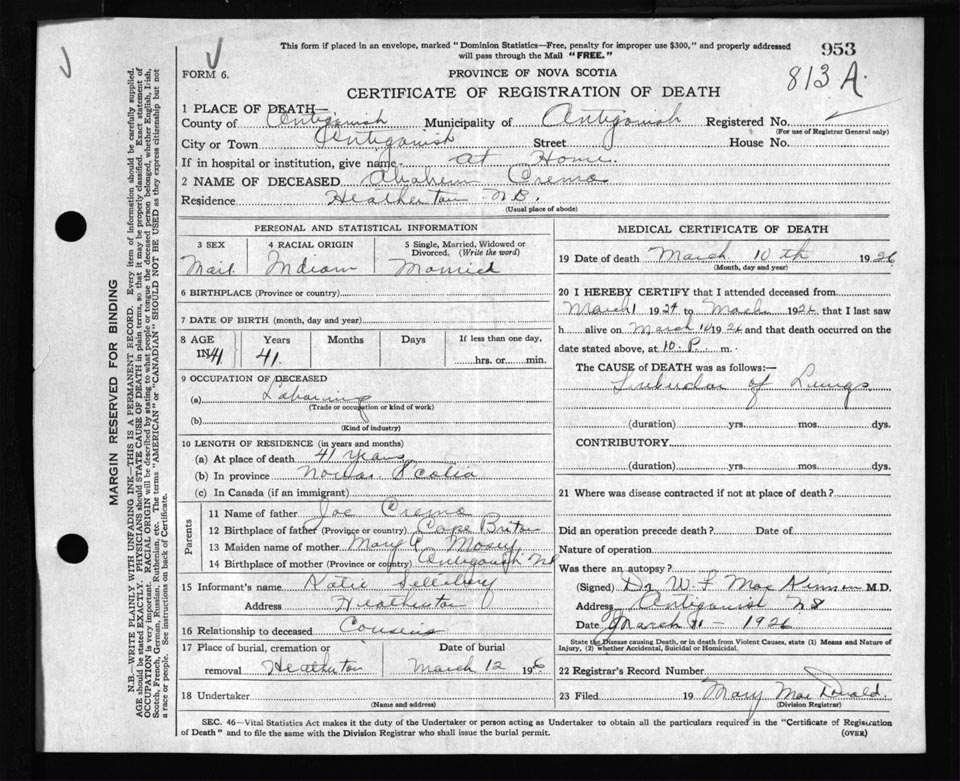 This form if placed in an envelope, marked "Dominion Statistics—Free, penalty for improper use $300," and properly addressed
will pass through the Mail "FREE."
953
FORM 6.
PROVINCE OF NOVA SCOTIA
813 A.
CERTIFICATE OF REGISTRATION OF DEATH
1 PLACE OF DEATH—
County of Antigonish Municipality of Antigonish Registered No.
(For use of Registrar General only)
City or Town Antigonish Street House No.
If in hospital or institution, give name at Home.
2 NAME OF DECEASED Crema
Residence Heatherton
(Usual place of abode)
PERSONAL AND STATISTICAL INFORMATION
3 SEX 4 RACIAL ORIGIN 5 Single, Married, Widowed or Divorced. (Write the word)
Mail. Indian Married
6 BIRTHPLACE (Province or country)
7 DATE OF BIRTH (month, day and year)
8 AGE Years Months Days If less than one day,
IN 41 41. hrs. or min.
9 OCCUPATION OF DECEASED
(a) Laboring
(Trade or occupation or kind of work)
(b)
(Kind of industry)
10 LENGTH OF RESIDENCE (in years and months)
(a) At place of death 41 Years
(b) In province Scotia
(c) In Canada (if an immigrant)
Parents
11 Name of father Joe Crema
12 Birthplace of father (Province or country) Cape Briton
13 Maiden name of mother
14 Birthplace of mother (Province or country) Antigonish
15 Informant's name Katie
Address Heatherton
16 Relationship to deceased Cousins
17 Place of burial, cremation or removal Heatherton Date of burial March 12 1926
18 Undertaker
(Name and address)
MEDICAL CERTIFICATE OF DEATH
19 Date of death March 10 th 1926
(Month, day and year)
20 I HEREBY CERTIFY that I attended deceased from
March 1 1924 to March 1926, that I last saw
h alive on March 10 1926 and that death occurred on
date stated above, at 10. P. m.
The CAUSE OF DEATH was as follows:—
of Lungs
(duration) yrs. mos. dys.
CONTRIBUTORY
(duration) yrs. mos. dys.
21 Where was disease contracted if not at place of death?
Did an operation precede death? Date of
Nature of operation
Was there an autopsy?
(Signed) Dr W. F. MacKinnon M.D.
Address Antigonish NS
Date March 11 - 1926
State the Disease causing Death, or in death from Violent Causes, state (1) Means and Nature of Injury, (2) whether Accidental, Suicidal or Homicidal.
22 Registrar's Record Number
23 Filed 19 Mary MacDonald.
(Division Registrar)
SEC. 46—Vital Statistics Act makes it the duty of the Undertaker or person acting as Undertaker to obtain all the particulars required in the "Certificate of Registration
of Death" and to file the same with the Division Registrar who shall issue the burial permit.
(OVER)
MARGIN RESERVED FOR BINDING
N.B.—WRITE PLAINLY WITH UNFADING INK—THIS IS A PERMANENT RECORD. Every item of information should be carefully supplied.
AGE should be stated EXACTLY. PHYSICIANS should STATE CAUSE OF DEATH in plain terms, so that it may be properly classified. Exact statement of
OCCUPATION is very important. RACIAL ORIGIN will be described by stating to what people or tongue the deceased person belonged, whether English, Irish,
Scotch, French, German, Russian, Ruthenian, etc. The terms "AMERICAN" or "CANADIAN" SHOULD NOT BE USED as they express citizenship but not
a race or people. See instructions on back of Certificate.